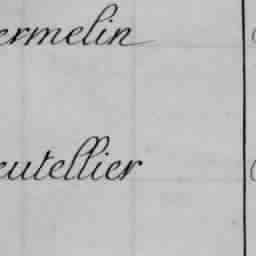 ermelin
eutellier